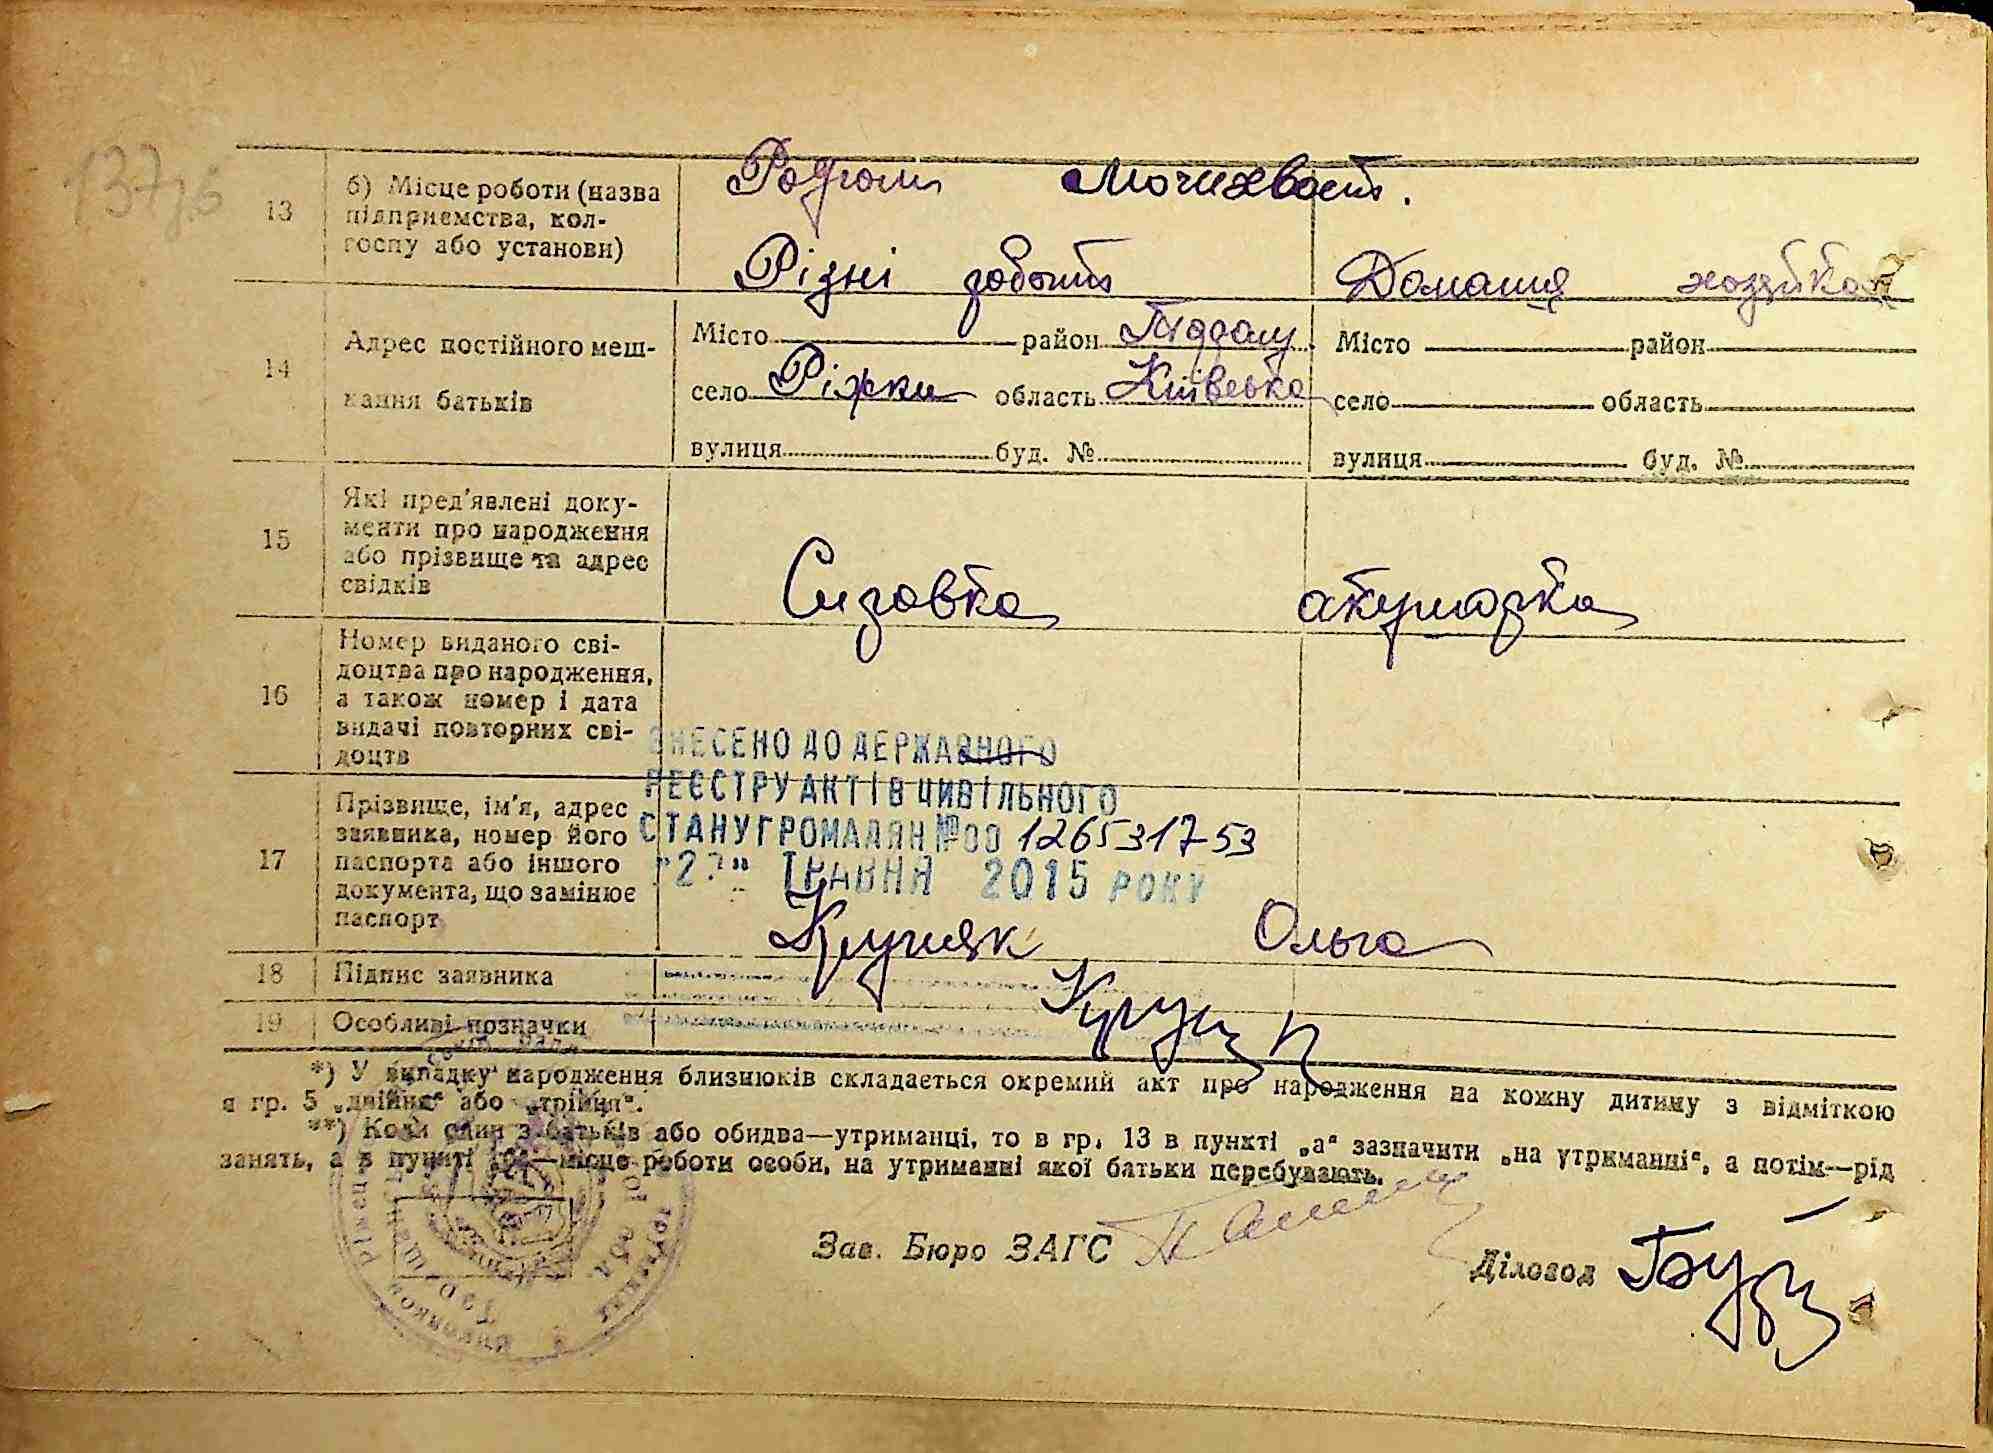 13
б) Місце роботи (назва
підприємства, кол-
госпу або установи)
Радгосп Мочихвост.
Різні роботи
Домашня хозяйка
14
Адрес постійного меш-
кання батьків
Місто район
село Ріжки область Київська
вулиця буд. №
Місто район
село область
вулиця буд. №
15
Які пред'явлені доку-
менти про народження
або прізвище та адрес
свідків
акушорка
16
Номер виданого сві-
доцтва про народження,
а також номер і дата
видачі повторних сві-
доцтв
ВНЕСЕНО ДО ДЕРЖАВНОГО
РЕЄСТРУ АКТІВ ЦИВІЛЬНОГО
СТАНУ ГРОМАДЯН №00126531753
ТРАВНЯ 2015 РОКУ
17
Прізвище, ім'я, адрес
заявника, номер його
паспорта або іншого
документа, що замінює
паспорт
Ольга
18
Підпис заявника
19
Особливі позначки
*) У випадку народження близнюків складається окремий акт про народження на кожну дитину з відміткою
в гр. 5 „двійня“ або „трійня“.
**) Коли один з батьків або обидва—утриманці, то в гр. 13 в пункті „а“ зазначити „на утриманні“, а потім—рід
занять, а в пункті „б“—місце роботи особи, на утриманні якої батьки перебувають.
Зав. Бюро ЗАГС
Діловод